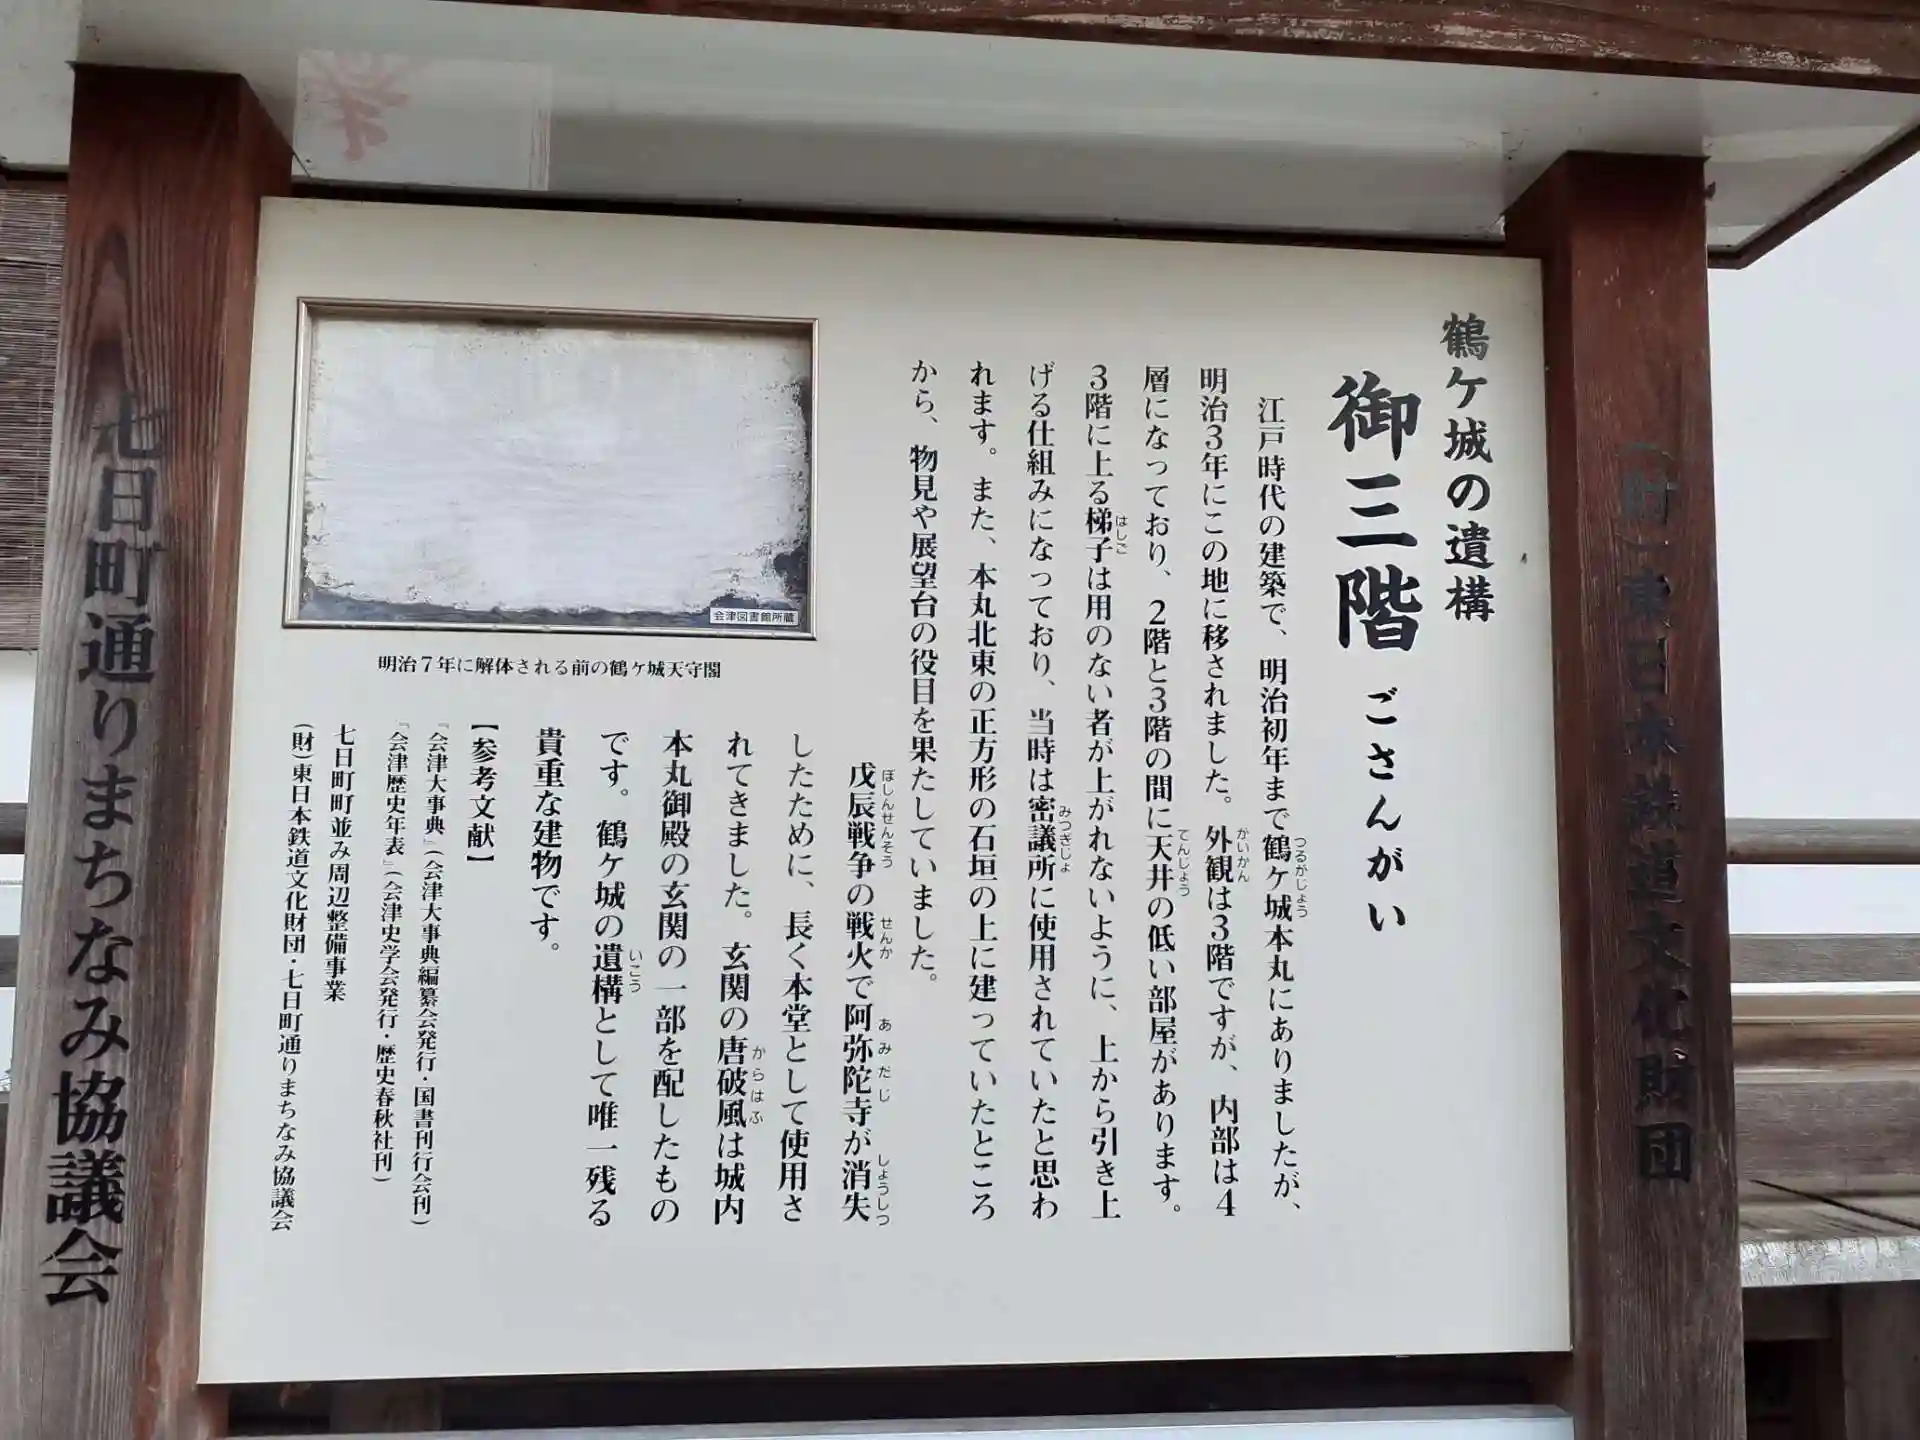 鶴ケ城の遺構
御三階 ごさんがい
江戸時代の建築で、明治初年まで鶴ケ城本丸にありましたが、
つるがじょう
明治3年にこの地に移されました。外観は3階ですが、内部は4
がいかん
層になっており、2階と3階の間に天井の低い部屋があります。
てんじょう
3階に上る梯子は用のない者が上がれないように、上から引き上
はしご
げる仕組みになっており、当時は密議所に使用されていたと思わ
みつぎじょ
れます。また、本丸北東の正方形の石垣の上に建っていたところ
から、物見や展望台の役目を果たしていました。
戊辰戦争の戦火で阿弥陀寺が消失
ぼしんせんそう せんか あみだじ しょうしつ
したために、長く本堂として使用さ
れてきました。玄関の唐破風は城内
からはふ
本丸御殿の玄関の一部を配したもの
です。鶴ケ城の遺構として唯一残る
いこう
貴重な建物です。
【参考文献】
『会津大事典』(会津大事典編纂会発行・国書刊行会刊)
『会津歴史年表』(会津史学会発行・歴史春秋社刊)
七日町町並み周辺整備事業
(財)東日本鉄道文化財団・七日町通りまちなみ協議会
会津図書館所蔵
明治7年に解体される前の鶴ケ城天守閣
(財)東日本鉄道文化財団
七日町通りまちなみ協議会